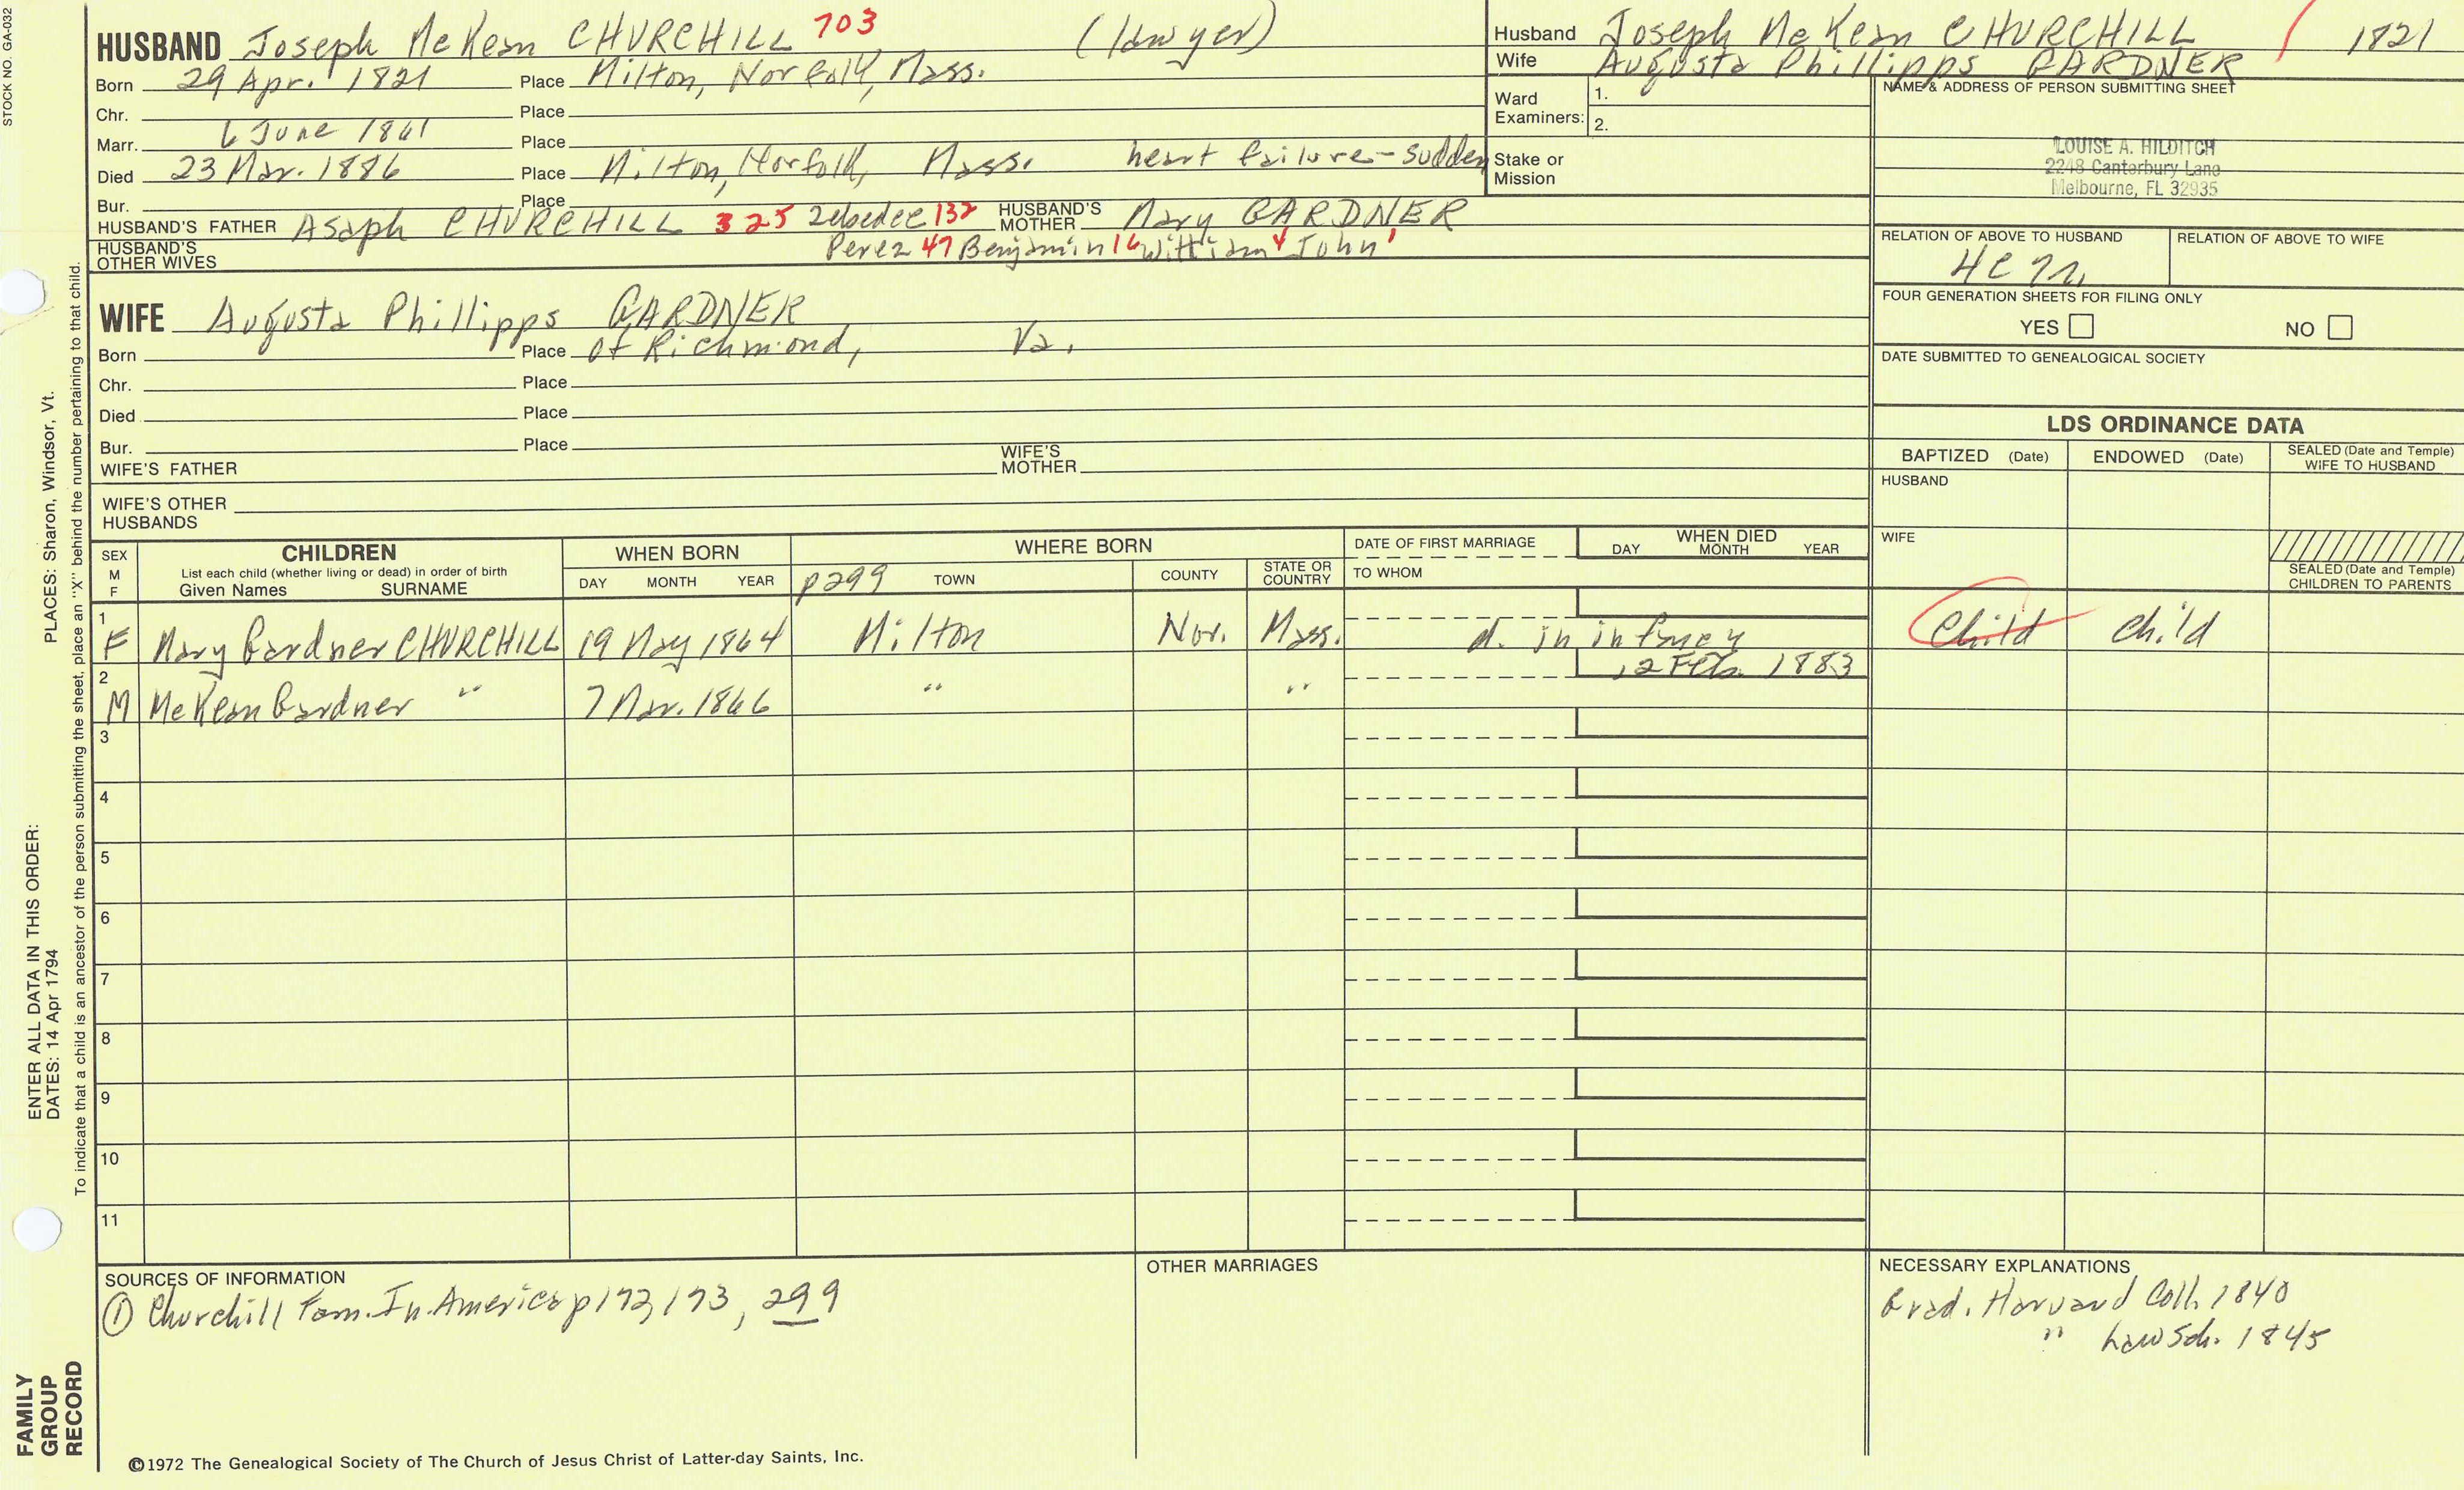 STOCK NO. GA-032
HUSBAND Joseph McKean CHURCHILL 703 (lawyer)
Born 29 Apr. 1821 Place Milton, Norfolk, Mass.
Chr. Place
Marr. 6 June 1861 Place
Died 23 Mar. 1886 Place Milton, Norfolk, Mass. heart failure-sudden
Bur. Place
HUSBAND'S FATHER Asaph CHURCHILL 325 Zebedee 132 HUSBAND'S MOTHER Mary GARDNER
HUSBAND'S OTHER WIVES Perez 47 Benjamin 16 William 4 John 1
Husband Joseph McKean CHURCHILL 1821
Wife Augusta Phillipps GARDNER
Ward Examiners: 1.
2.
Stake or Mission
NAME & ADDRESS OF PERSON SUBMITTING SHEET
LOUISE A. HILDITCH
2248 Canterbury Lane
Melbourne, FL 32935
RELATION OF ABOVE TO HUSBAND RELATION OF ABOVE TO WIFE
FOUR GENERATION SHEETS FOR FILING ONLY
YES NO
DATE SUBMITTED TO GENEALOGICAL SOCIETY
WIFE Augusta Phillipps GARDNER
Born Place of Richmond, Va.
Chr. Place
Died Place
Bur. Place
WIFE'S FATHER WIFE'S MOTHER
WIFE'S OTHER HUSBANDS
LDS ORDINANCE DATA
BAPTIZED (Date) ENDOWED (Date) SEALED (Date and Temple) WIFE TO HUSBAND
HUSBAND
WIFE
SEALED (Date and Temple) CHILDREN TO PARENTS
SEX M F CHILDREN
List each child (whether living or dead) in order of birth
Given Names SURNAME
WHEN BORN
DAY MONTH YEAR
WHERE BORN
p299 TOWN COUNTY STATE OR COUNTRY
DATE OF FIRST MARRIAGE
TO WHOM
WHEN DIED
DAY MONTH YEAR
1 F Mary Gardner CHURCHILL 19 May 1864 Milton Nor. Mass. d. in infancy Child Child
2 M McKean Gardner " 7 Mar. 1866 " " 12 Feb. 1883
3
4
5
6
7
8
9
10
11
SOURCES OF INFORMATION
① Churchill Fam. In America p172, 173, 299
OTHER MARRIAGES
NECESSARY EXPLANATIONS
Grad. Harvard Coll. 1840
" Law Sch. 1845
PLACES: Sharon, Windsor, Vt.
To indicate that a child is an ancestor of the person submitting the sheet, place an "X" behind the number pertaining to that child.
ENTER ALL DATA IN THIS ORDER:
DATES: 14 Apr 1794
FAMILY GROUP RECORD
©1972 The Genealogical Society of The Church of Jesus Christ of Latter-day Saints, Inc.